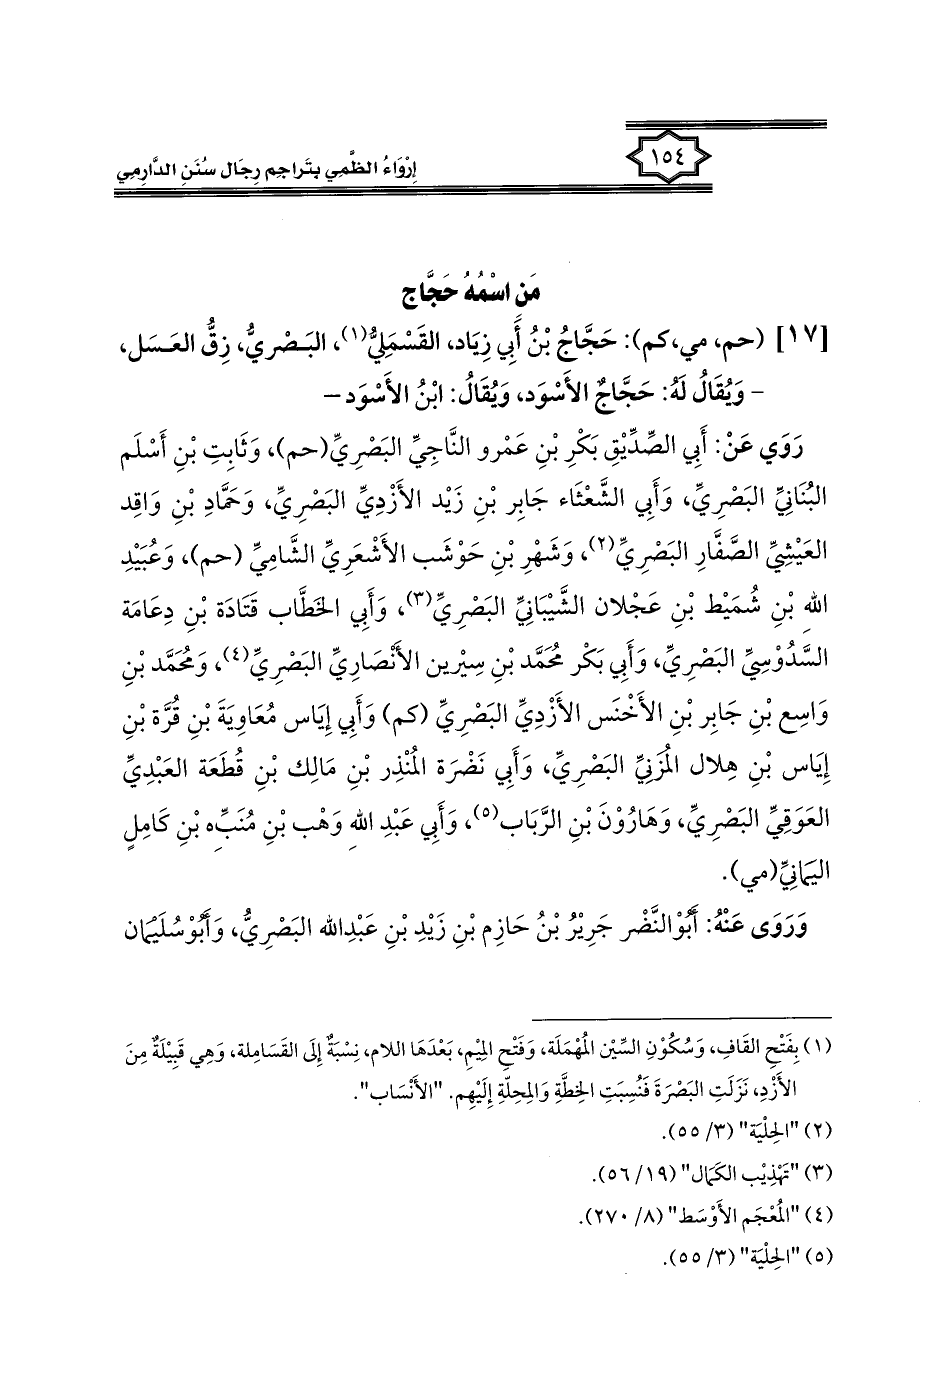 ١٥٤
إِرْوَاءُ الظَّمِي بتَراجِم رِجَال سُنَنِ الدَّارِمِي
مَن اسْمُهُ حَجَّاج
[١٧] (حم، مي، كم): حَجَّاجُ بْنُ أَبي زِيَاد، القَسْمَليُّ(١)، البَـصْريُّ، زِقُّ العَـسَل،
– وَيُقَالُ لَهُ: حَجَّاجٌ الأَسْوَد، وَيُقَالُ: ابْنُ الأَسْوَد –
رَوَي عَنْ: أَبي الصِّدِّيْقِ بَكْرِ بْنِ عَمْرو النَّاجِيِّ البَصْرِيِّ(حم)، وَثَابِتِ بْنِ أَسْلَم
البُنَانيِّ البَصْرِيِّ، وَأَبي الشَّعْثَاء جَابِر بْنِ زَيْد الأَزْدِيِّ البَصْرِيِّ، وَحَمَّادِ بْنِ وَاقِد
العَيْشِيِّ الصَّفَّارِ البَصْرِيِّ(٢)، وَشَهْرِ بْنِ حَوْشَب الأَشْعَرِيِّ الشَّامِيِّ (حم)، وَعُبَيْدِ
اللهِ بْنِ شُمَيْط بْنِ عَجْلان الشَّيْبَانيِّ البَصْرِيِّ(٣)، وَأَبي الخَطَّاب قَتَادَة بْنِ دِعَامَة
السَّدُوْسِيِّ البَصْرِيِّ، وَأَبي بَكْر مُحَمَّد بْنِ سِيْرين الأَنْصَاريِّ البَصْرِيِّ(٤)، وَمُحَمَّد بْنِ
وَاسِع بْنِ جَابِر بْنِ الأَخْنَس الأَزْدِيِّ البَصْرِيِّ (كم) وَأَبي إِيَاس مُعَاوِيَةَ بْنِ قُرَّة بْنِ
إِيَاس بْنِ هِلال المُزَنيِّ البَصْرِيِّ، وَأَبي نَضْرَة المُنْذِر بْنِ مَالِك بْنِ قُطَعَة العَبْدِيِّ
العَوَقِيِّ البَصْرِيِّ، وَهَارُوْنَ بْنِ الرَّبَاب(٥)، وَأَبي عَبْدِ اللهِ وَهْب بْنِ مُنَبِّه بْنِ كَامِل
اليَمَانيِّ(مي).
وَرَوَى عَنْهُ: أَبُوْالنَّضْر جَرِيْرُ بْنُ حَازِم بْنِ زَيْدِ بْنِ عَبْدِالله البَصْرِيُّ، وَأَبُوْسُلَيْمَان
(١) بِفَتْحِ القَافِ، وَسُكُوْنِ السِّيْن المُهْمَلَة، وَفَتْحِ المِيْمِ، بَعْدَهَا اللام، نِسْبَةٌ إِلَى القَسَامِلة، وَهِي قَبِيْلَةٌ مِنَ
الأَزْدِ، نَزَلَتِ البَصْرَةَ فَنُسِبَتِ الخِطَّةِ وَالمِحلّةِ إِلَيْهِم. "الأَنْسَاب".
(٢) "الحِلْيَة" (٣/ ٥٥).
(٣) "تَهْذِيْب الكَمَال" (١٩/ ٥٦).
(٤) "المُعْجَم الأَوْسَط" (٨/ ٢٧٠).
(٥) "الحِلْيَة" (٣/ ٥٥).